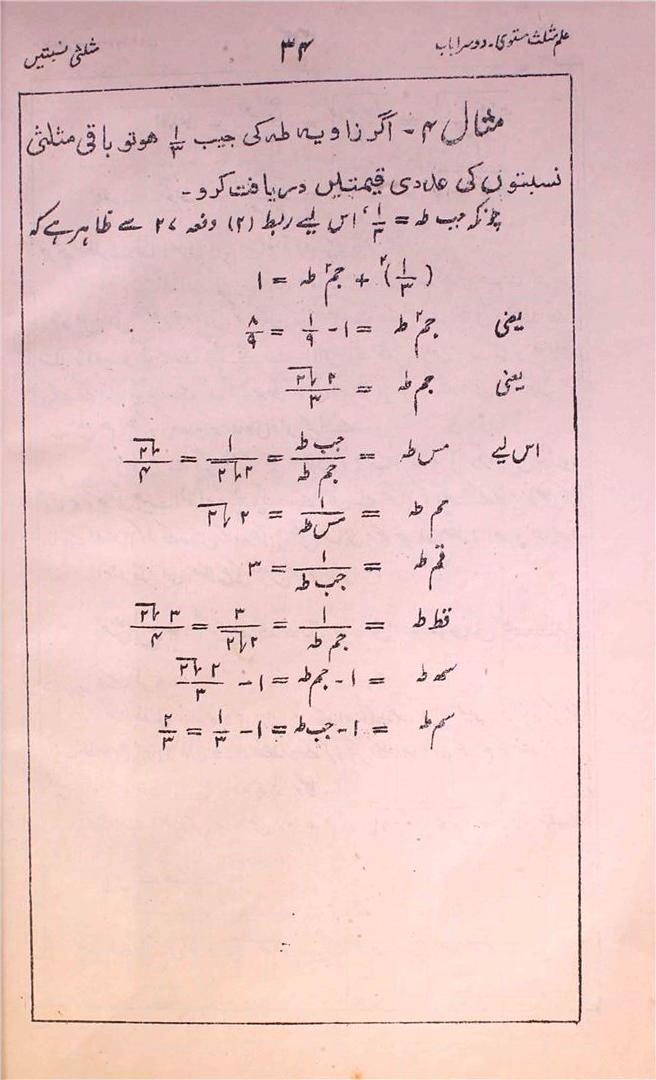 علم مثلث مستوی۔ دوسرا باب ۳۴ مثلثی نسبتیں
مثال ۴ ۔ اگر زاویہ طہ کی جیب ۱/۳ ہو تو باقی مثلثی
نسبتوں کی عددی قیمتیں دریافت کرو ۔
چونکہ جب طہ = ۱/۳، اس لیے ربط (۲) دفعہ ۲۷ سے ظاہر ہے کہ
(۱/۳)^۲ + جم^۲ طہ = ۱
یعنی جم^۲ طہ = ۱ - ۱/۹ = ۸/۹
یعنی جم طہ = ۲√۲/۳
اس لیے مس طہ = جب طہ/جم طہ = ۱/۲√۲ = √۲/۴
مم طہ = ۱/مس طہ = ۲√۲
قم طہ = ۱/جب طہ = ۳
قط طہ = ۱/جم طہ = ۳/۲√۲ = ۳√۲/۴
سحہ طہ = ۱ - جم طہ = ۱ - ۲√۲/۳
سم طہ = ۱ - جب طہ = ۱ - ۱/۳ = ۲/۳